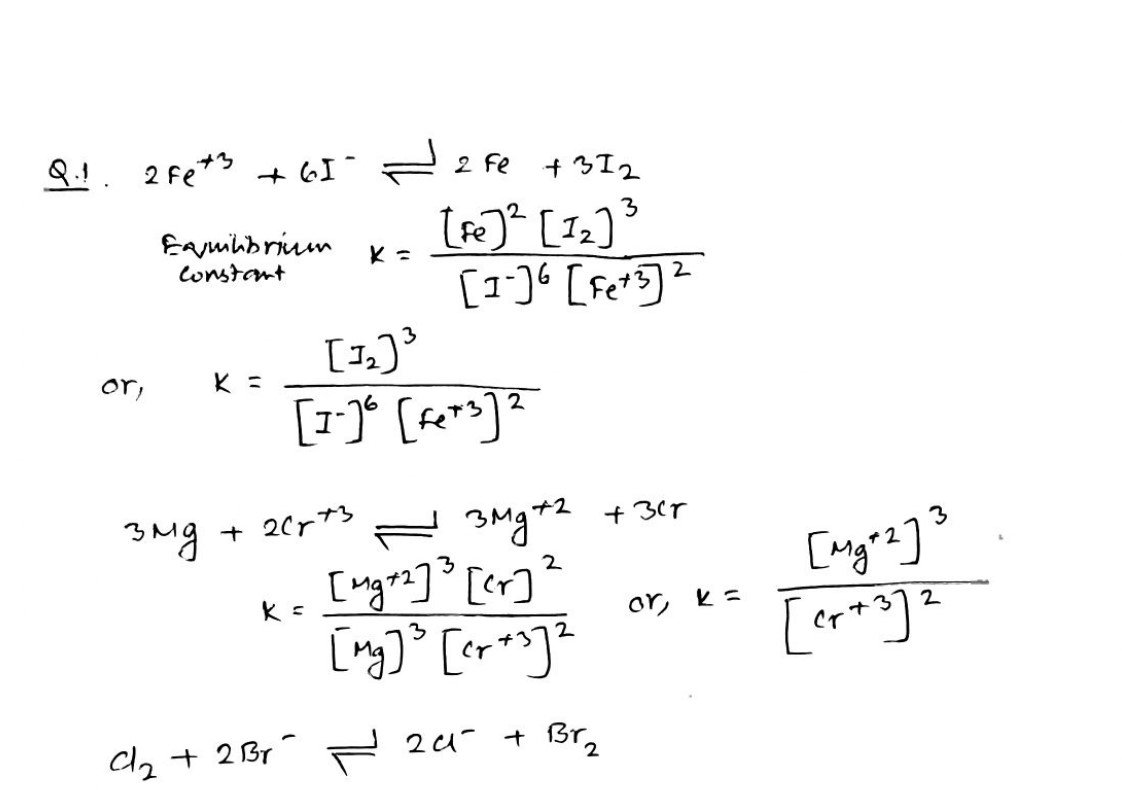 Q.1. 2Fe⁺³ + 6I⁻ ⇌ 2Fe + 3I₂
Equilibrium constant K = [Fe]² [I₂]³ / [I⁻]⁶ [Fe⁺³]²
or, K = [I₂]³ / [I⁻]⁶ [Fe⁺³]²
3Mg + 2Cr⁺³ ⇌ 3Mg⁺² + 3Cr
K = [Mg⁺²]³ [Cr]² / [Mg]³ [Cr⁺³]² or, K = [Mg⁺²]³ / [Cr⁺³]²
Cl₂ + 2Br⁻ ⇌ 2Cl⁻ + Br₂